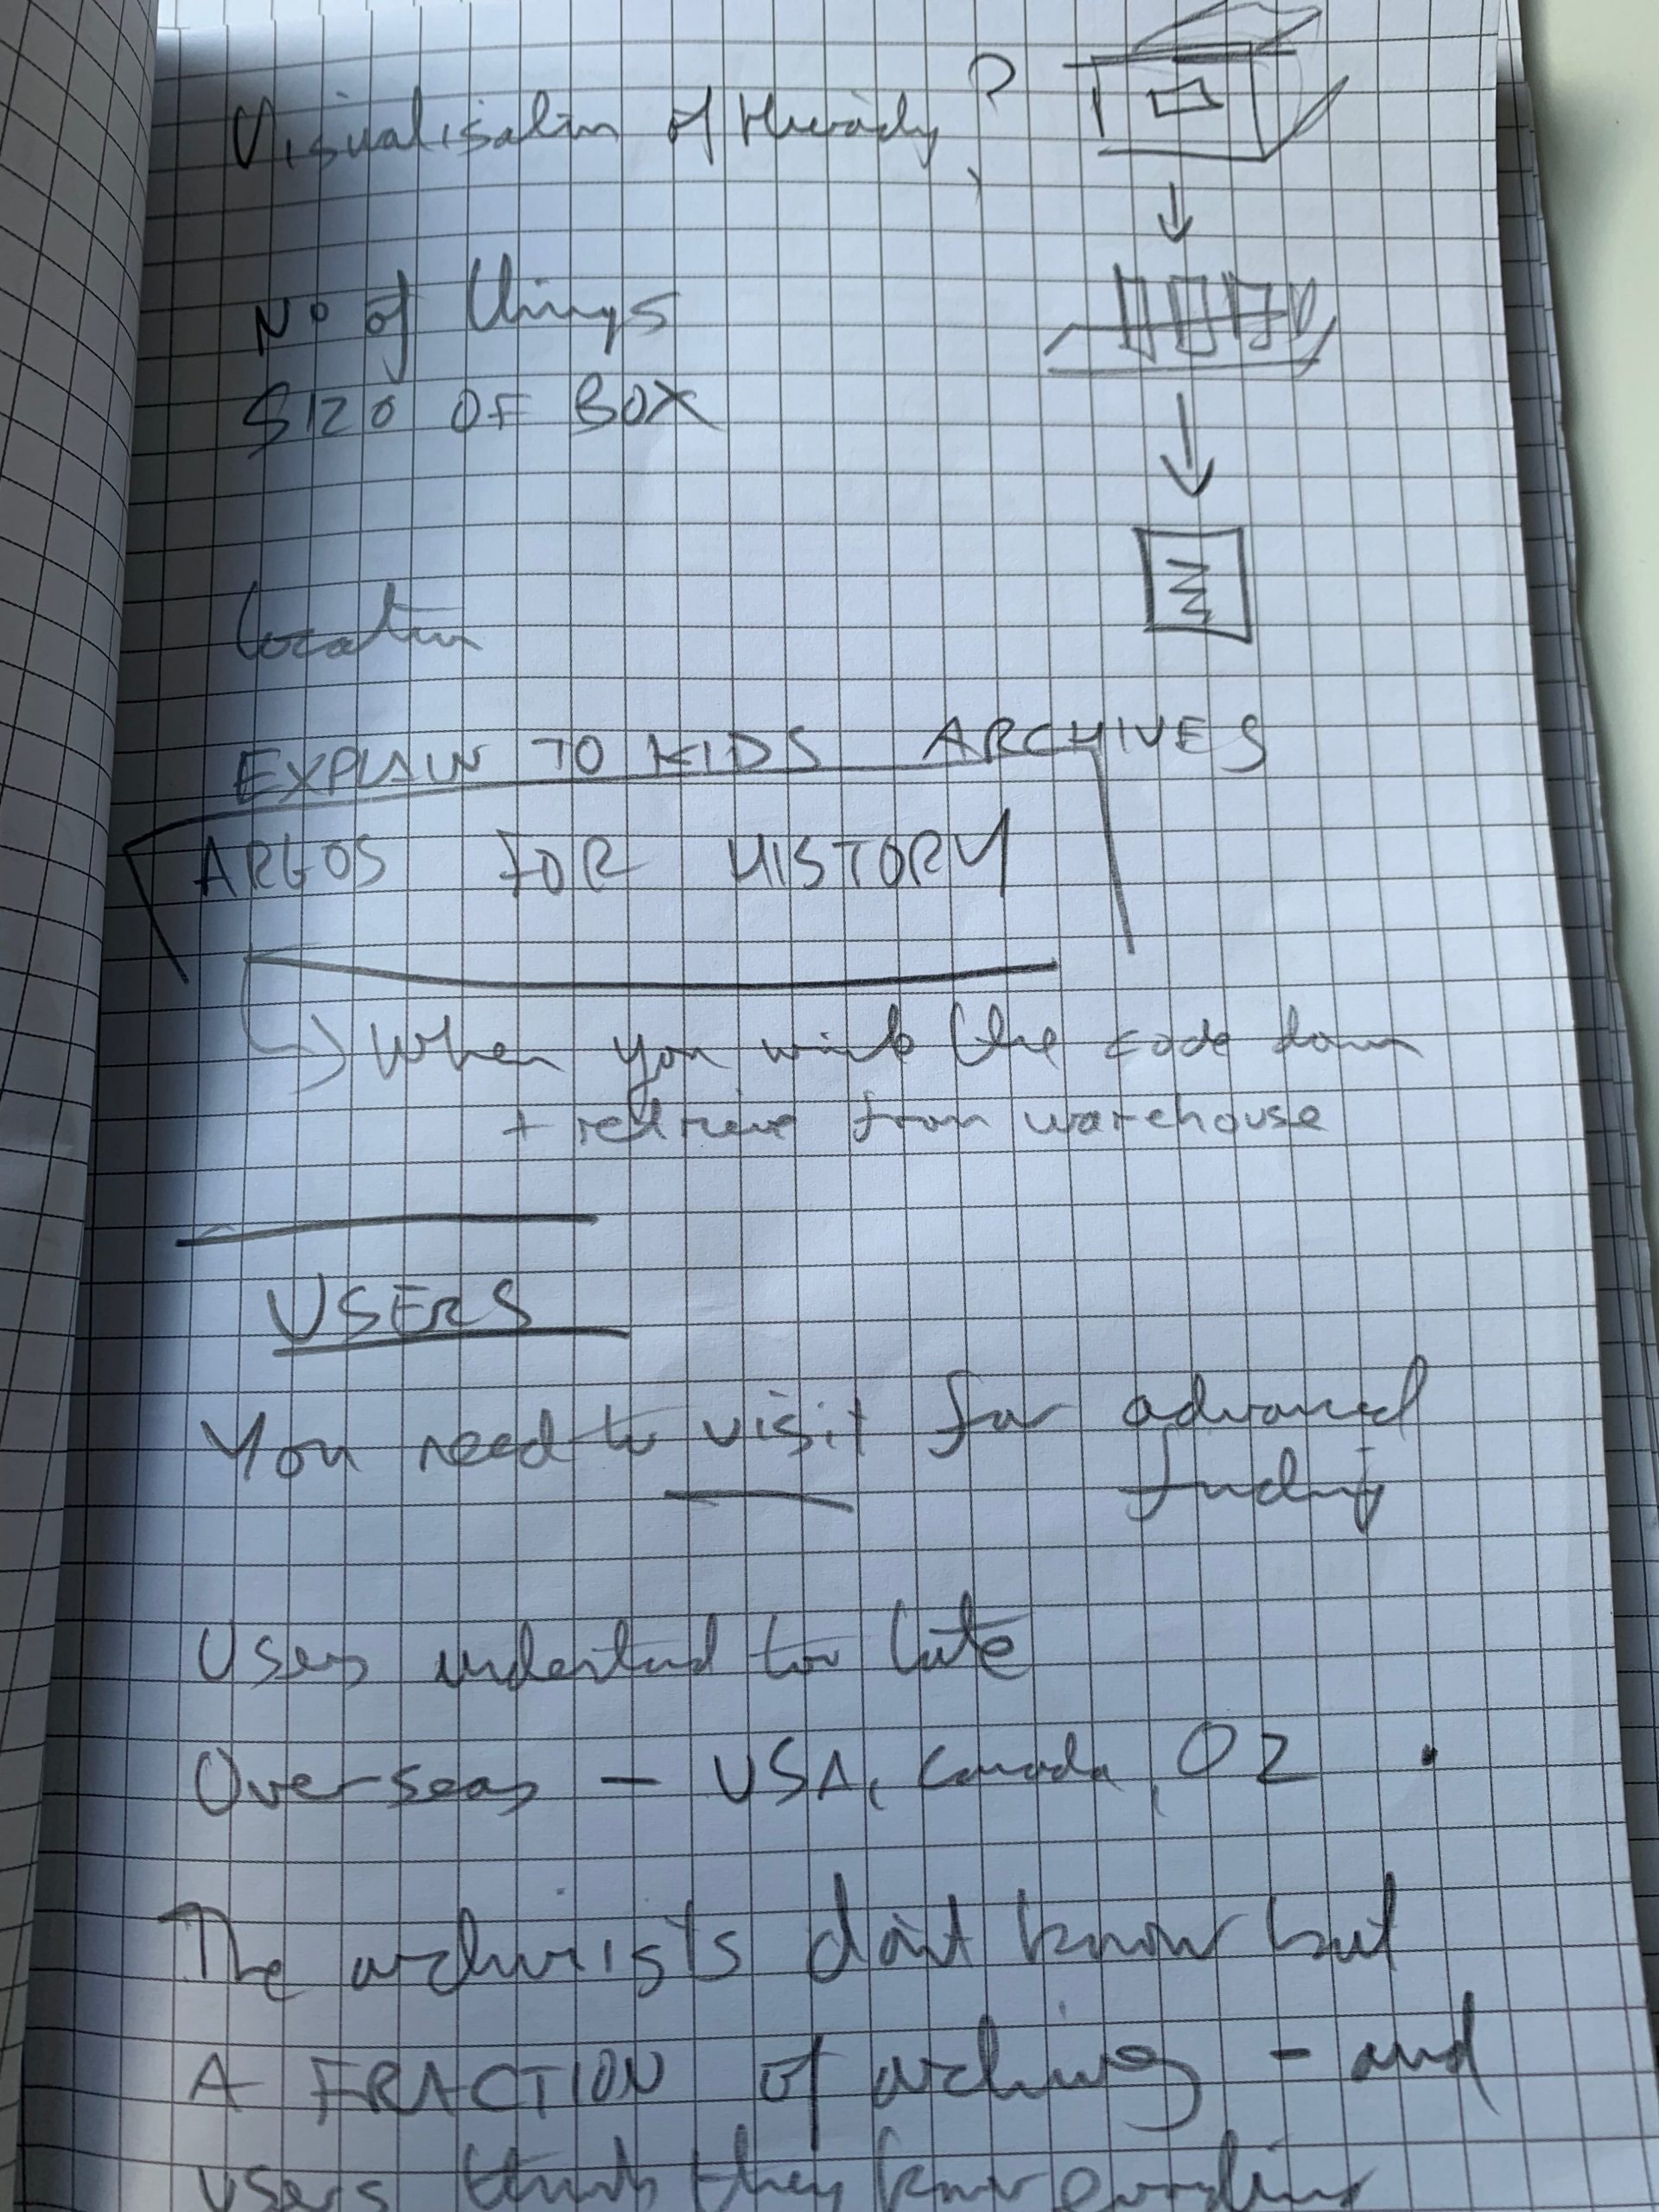 Visualisation of Hierarchy?
No of things
SIZE OF BOX
Location
EXPLAIN TO KIDS ARCHIVES
ARGOS FOR HISTORY
When you write the code down
+ retrieve from warehouse
USERS
You need to visit for advanced
finding
Users understand too late
Overseas - USA, Canada, OZ
The archivists don't know but
A FRACTION of archives - and
users think they know